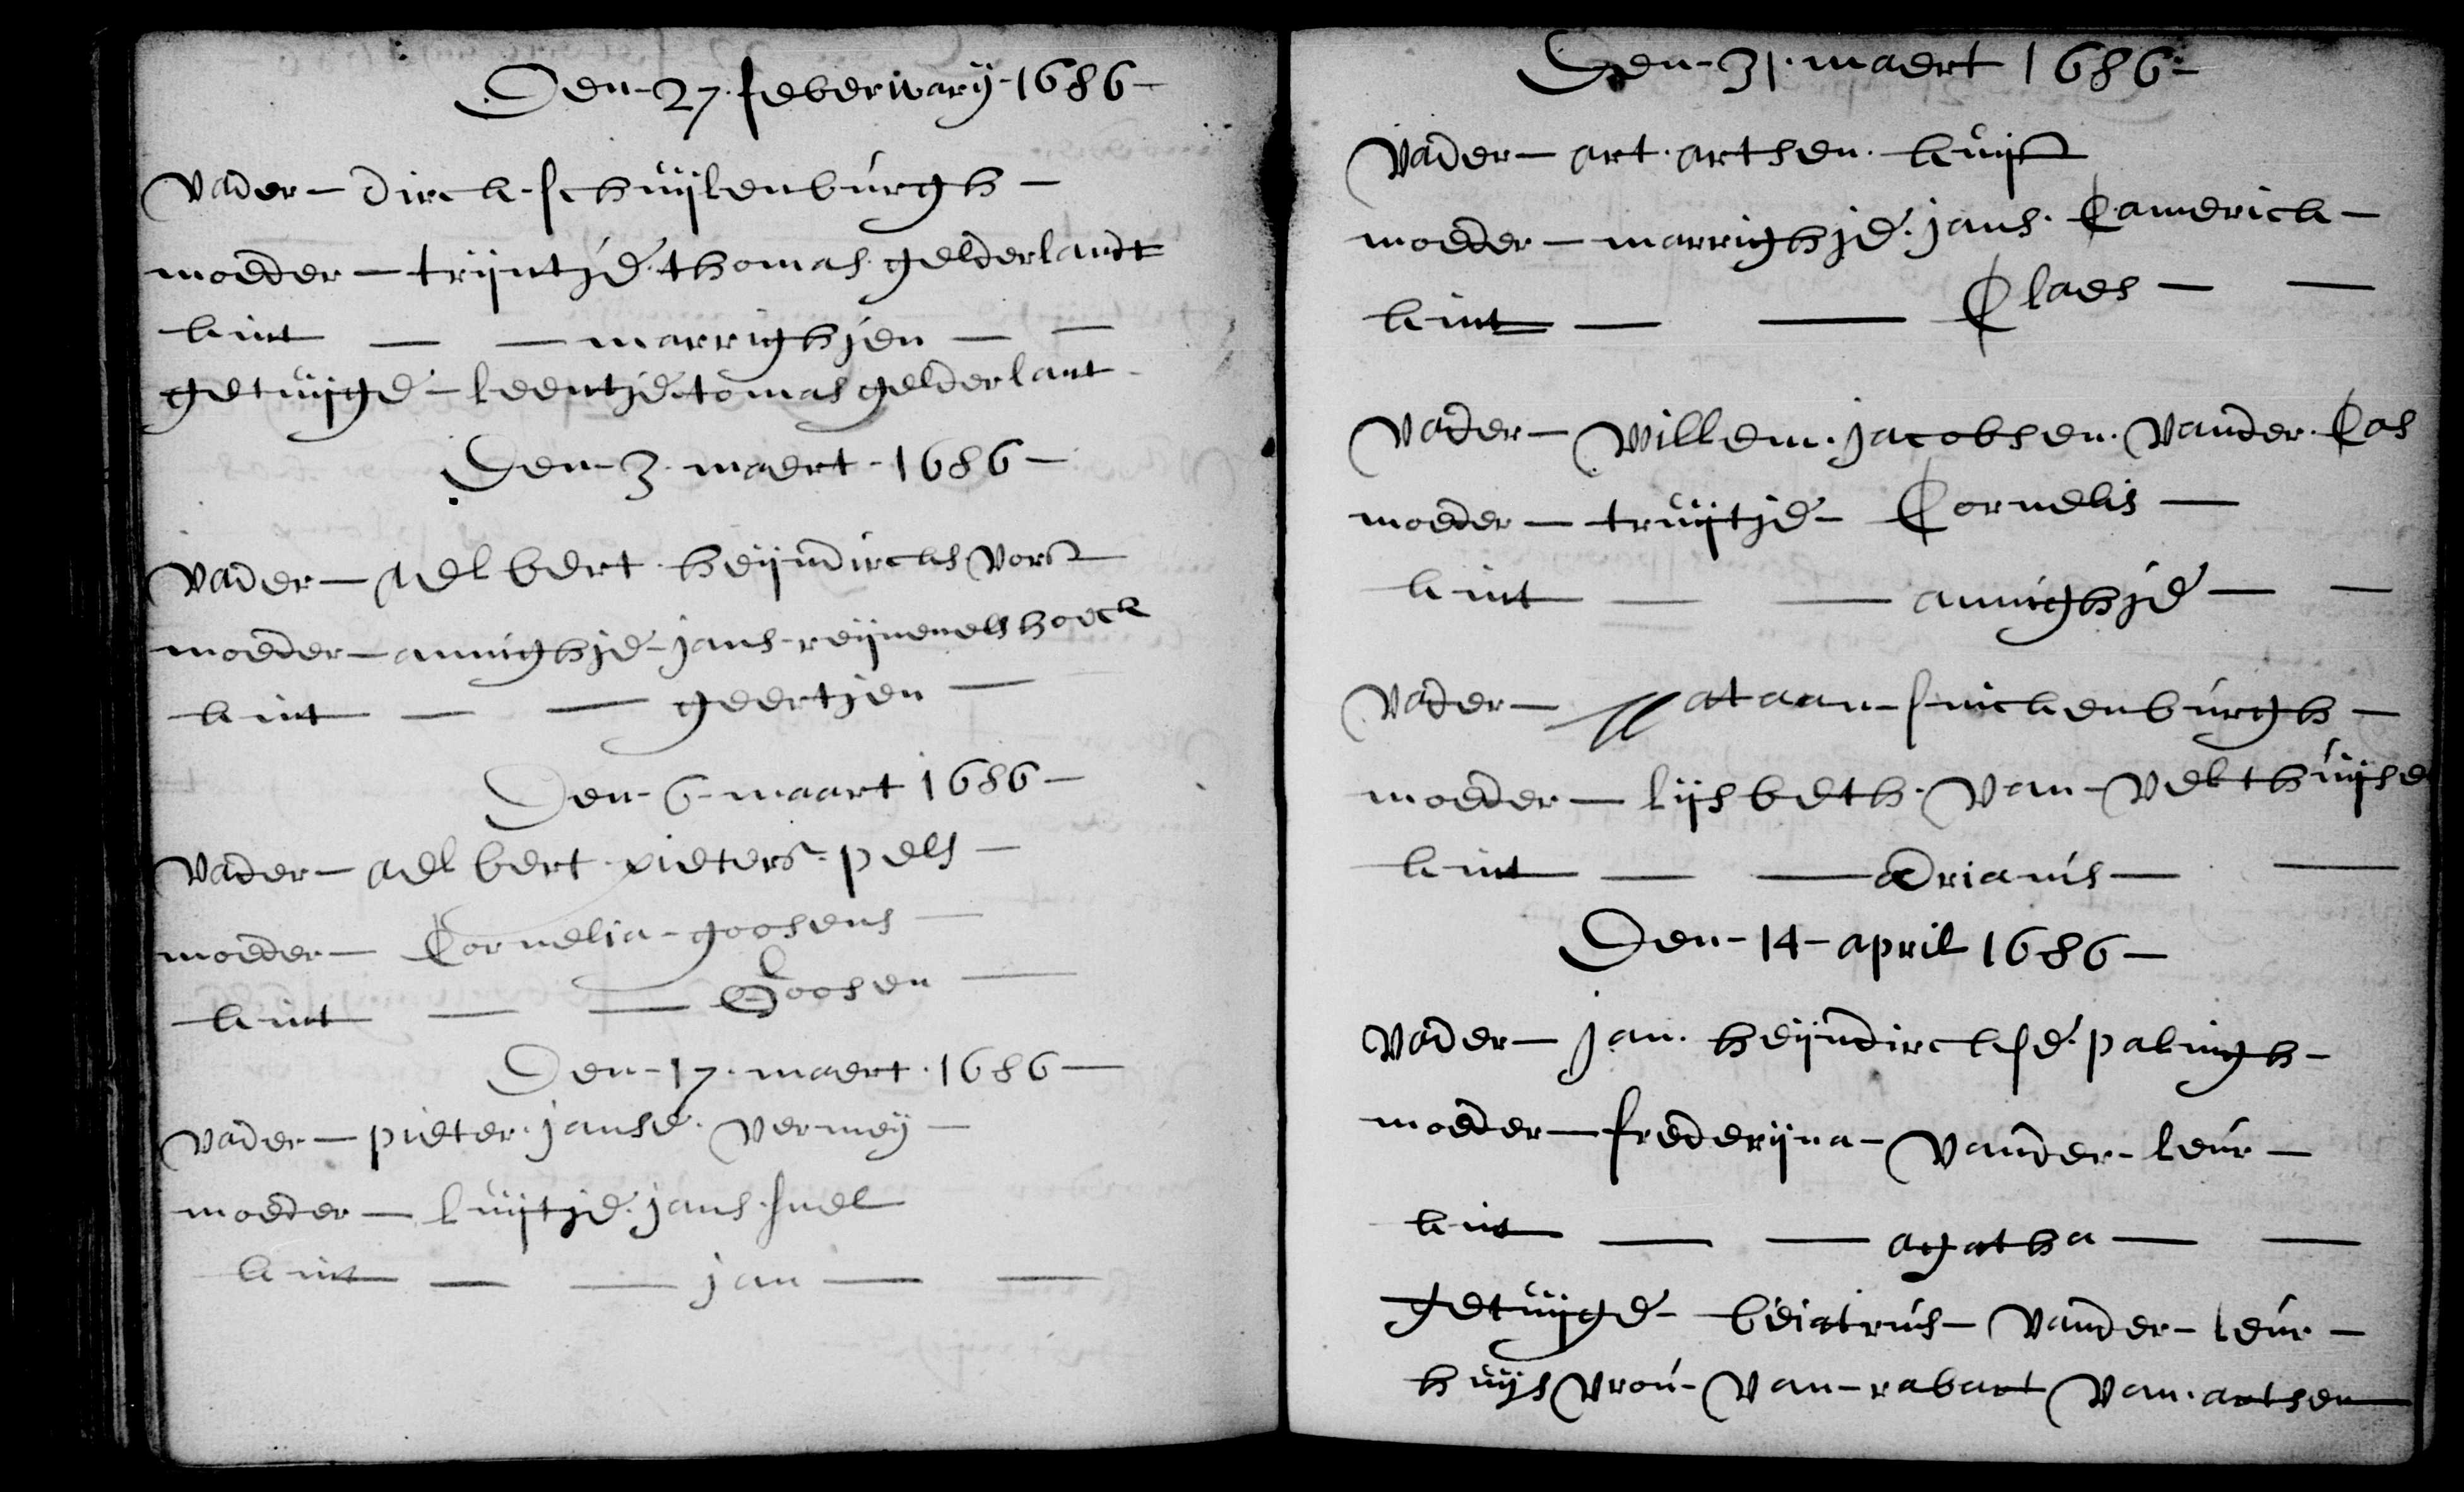 Den 27 feberwarij 1686
Vader dirck schuijlenburgh
moeder trijntje thomas gelderlandt
kint marrighjen
getuijge leentje tomas gelderlant
Den 3 maert 1686
Vader Aelbert heijndircks Vorst
moeder annighje jans reijnenelshoeck
kint geertjen
Den 6 maart 1686
Vader aelbert pieters pels
moeder Cornelia goosens
kint Goosen
Den 17 maert 1686
Vader pieter janse Vermeij
moeder luijtje jans snel
kint jan
Den 31 maert 1686
Vader art artsen kuijst
moeder marrighje jans Camerick
kint Claes
Vader Willem jacobsen Vander Cas
moeder truijtje Cornelis
kint annighje
Vader Nataan snickenburgh
moeder lijsbeth Van Velthuijse
kint adrianis
Den 14 april 1686
Vader jan heijndirckse palingh
moeder frederijna Vander leur
kint agatha
getuijge beiatrus Vander leur
huijsvrou Van rabart Van artsen